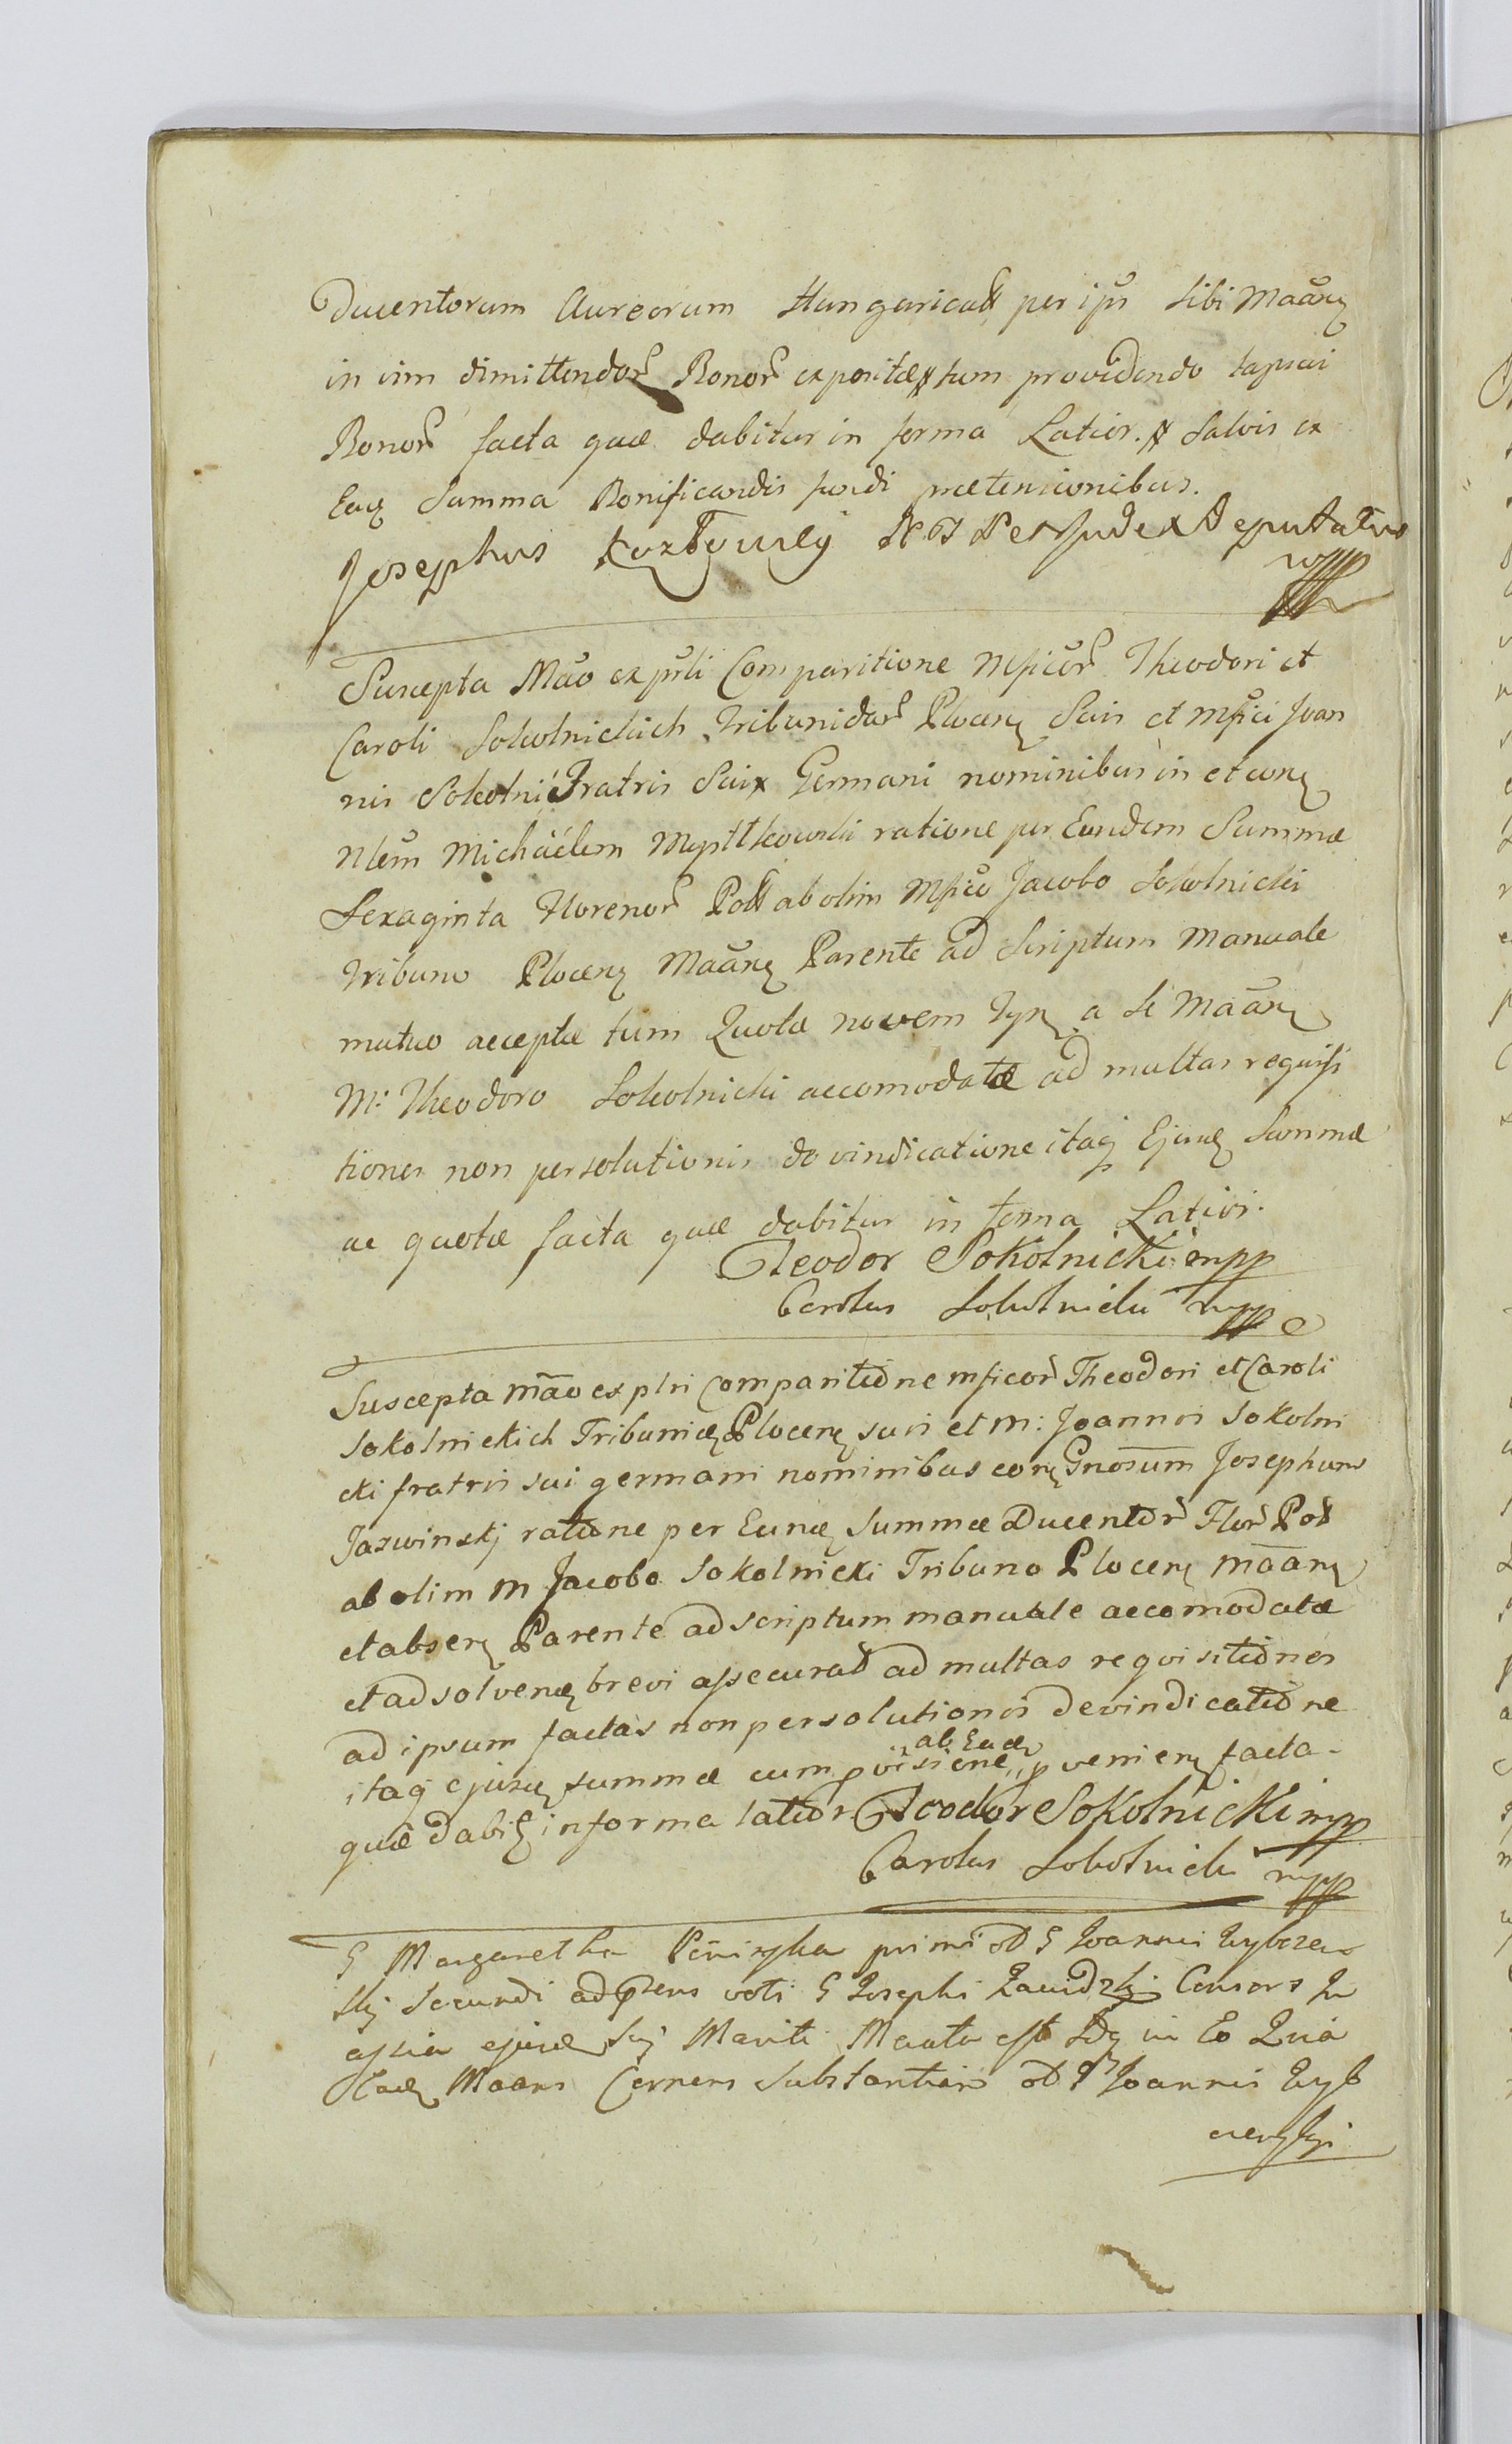 Ducentorum Aureorum Hungaricall per ipsū sibi Maāŋ
in vim dimittendor Bonor expositæ tum providendo lapsui
Bonor facta quæ dabitur in forma Latior. Salvis ex
Eaq Summa Bonificandis fundi prætensionibus.
Josephus Kozłowsky et Judex Deputatus
mpp
Suscepta Māo ex pñti Comparitione Mficor Theodori et
Caroli Sokolnickich Tribunidar Plocenŋ Suis et Mfici Joan
nis Sokolnic Fratris Sui Germani nominibus in et conŋ
Nlem Michaëlem Mysttkowski ratione per Eundem Summæ
Sexaginta Florenor Poll ab olim Mfico Jacobo Sokolnicki
Tribuno Plocenŋ Maānŋ Parente ad Scriptum Manuale
mutuo acceptæ tum Quotæ novem Tynŋ a se Maānŋ
M: Theodoro Sokolnicki accomodatæ ad multas requisi
tiones non persolutionis devindicatione itaq Ejusdŋ Summæ
ac quotæ facta quæ dabitur in forma Latiori.
Teodor Sokolnicki mpp
Carolus Sokolnicki mpp
Suscepta māo ex pñti Comparitione mficor Theodori et Caroli
Sokolnickich Tribunidŋ Plocenŋ suis et M: Joannis Sokolni
cki fratris sui germani nominibus conŋ Gnosum Josephum
Jaswinskj ratione per Eundŋ Summæ Ducentor Flor Pol
ab olim M Jacobo Sokolnicki Tribuno Plocenŋ māanŋ
et absenŋ Parente ad scriptum manuale accomodatæ
et ad solvendŋ brevi assecurat ad multas requisitiones
ad ipsum factas non persolutionis devindicatione
itaq ejusdŋ summæ cum pvisione ab Eadŋ pvenienŋ facta
quæ dabit in forma latior Teodor Sokolnicki mpp
Carolus Sokolnicki mpp
G Margaretha primi G Joannis
skj Secundi voti G Josephi Zawidzkj Consors In
assia ejusdŋ Suj Mariti Māata est Idq in Eo Quia
Eadŋ Maans Cernens Substantiam Joannis Zyb